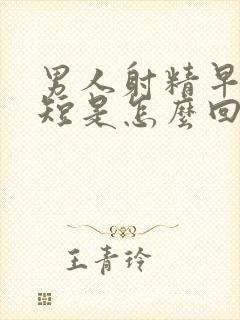 男人射精早
短是怎麼回
王青玲